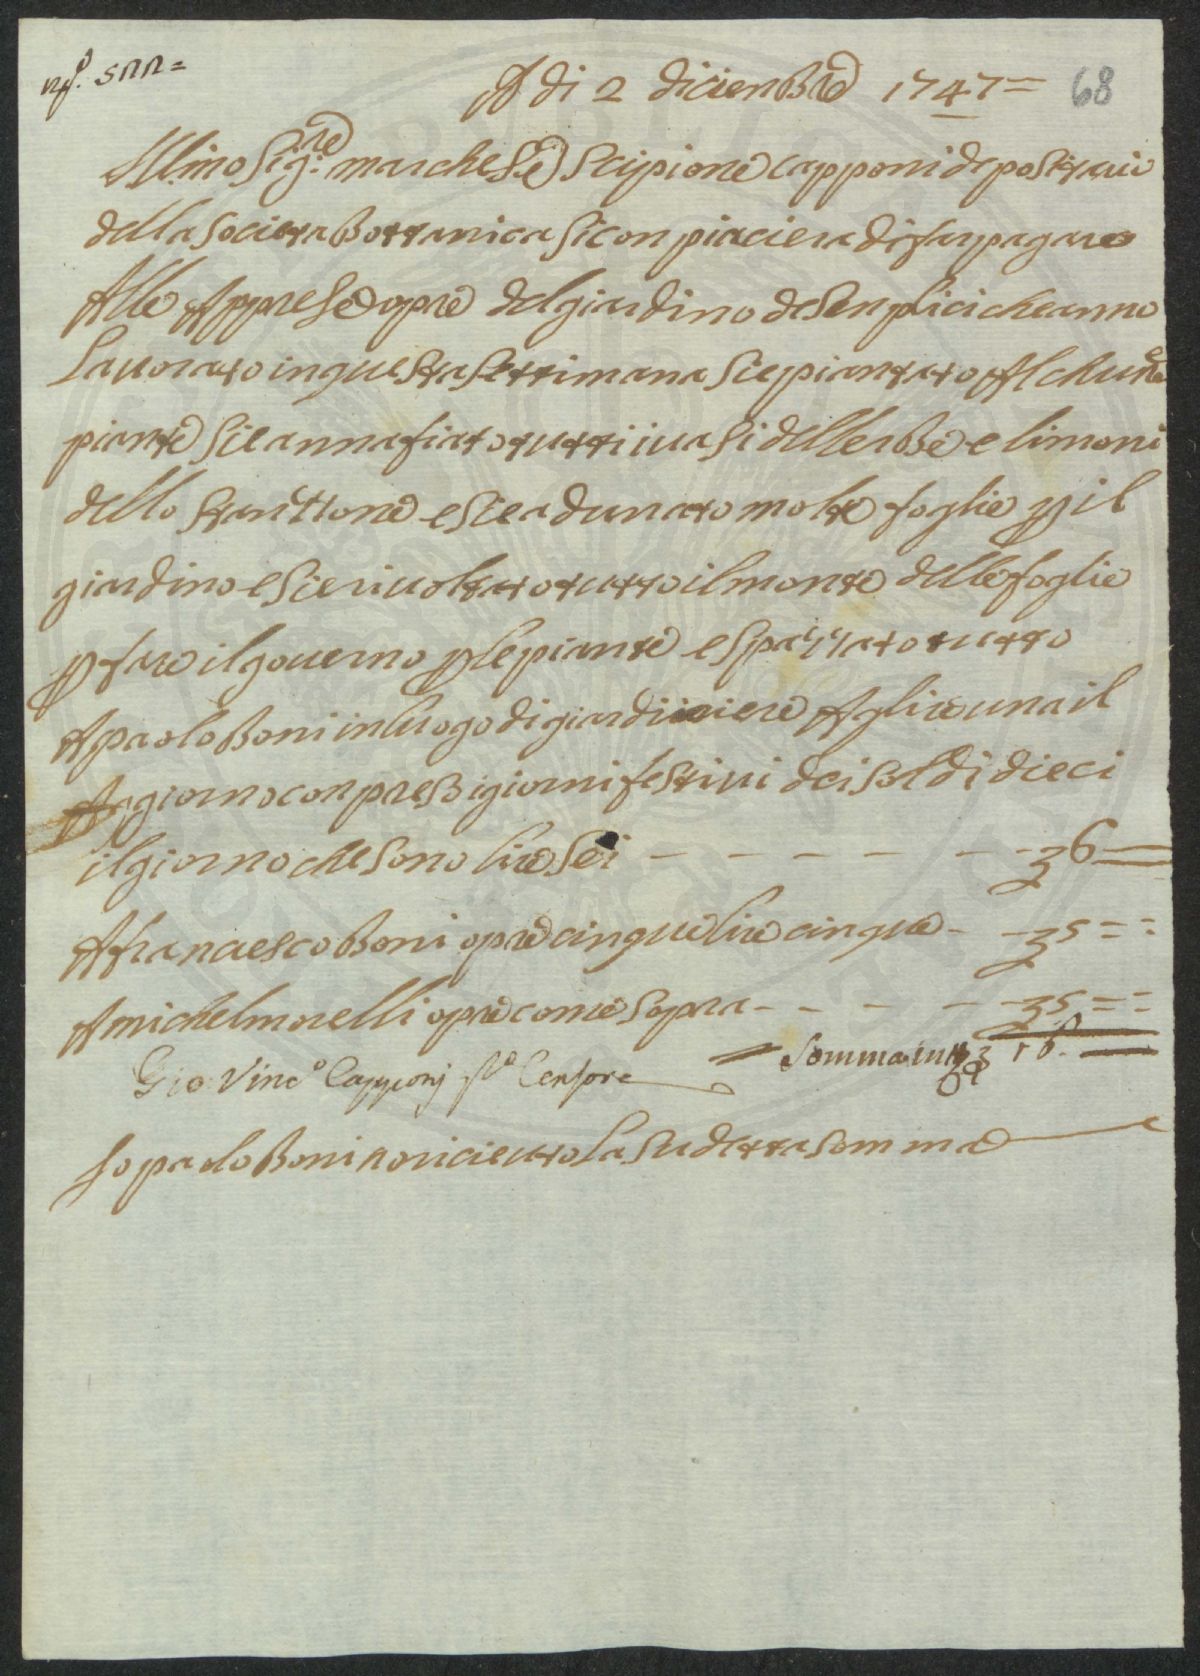 A di 2 diciembre 1747 =
68
Ill.mo Sig.re marchese Scipione Capponi depositario
della Societa Bottanica si conpiaciera di far pagare
Alle Apprese opre del giardino de Senplici che anno
Lauorato in questa Settimana Si e piantato Alchune
piante Si e annafiato tutti i uasi dell erbe e limoni
dello Stanttone e si e adunato molte foglie p il
giardino e si e riuoltato tutto il monte delle foglie
p fare il gouerno p le piante e spazzato tutto
A paolo Boni in luogo di giardiniere A g lire una il
giorno conpreso i giorni festiui dei soldi dieci
il giorno che sono lire sei - - - - - - 6
A francesco Boni opre cinque lire cinque - - 5 = =
A michel morelli opre come sopra - - - - 5 = =
Somma in tt 16.
Gio: Vinc.o Capponj Censore
Io paolo Boni o riceuto La sudetta somma